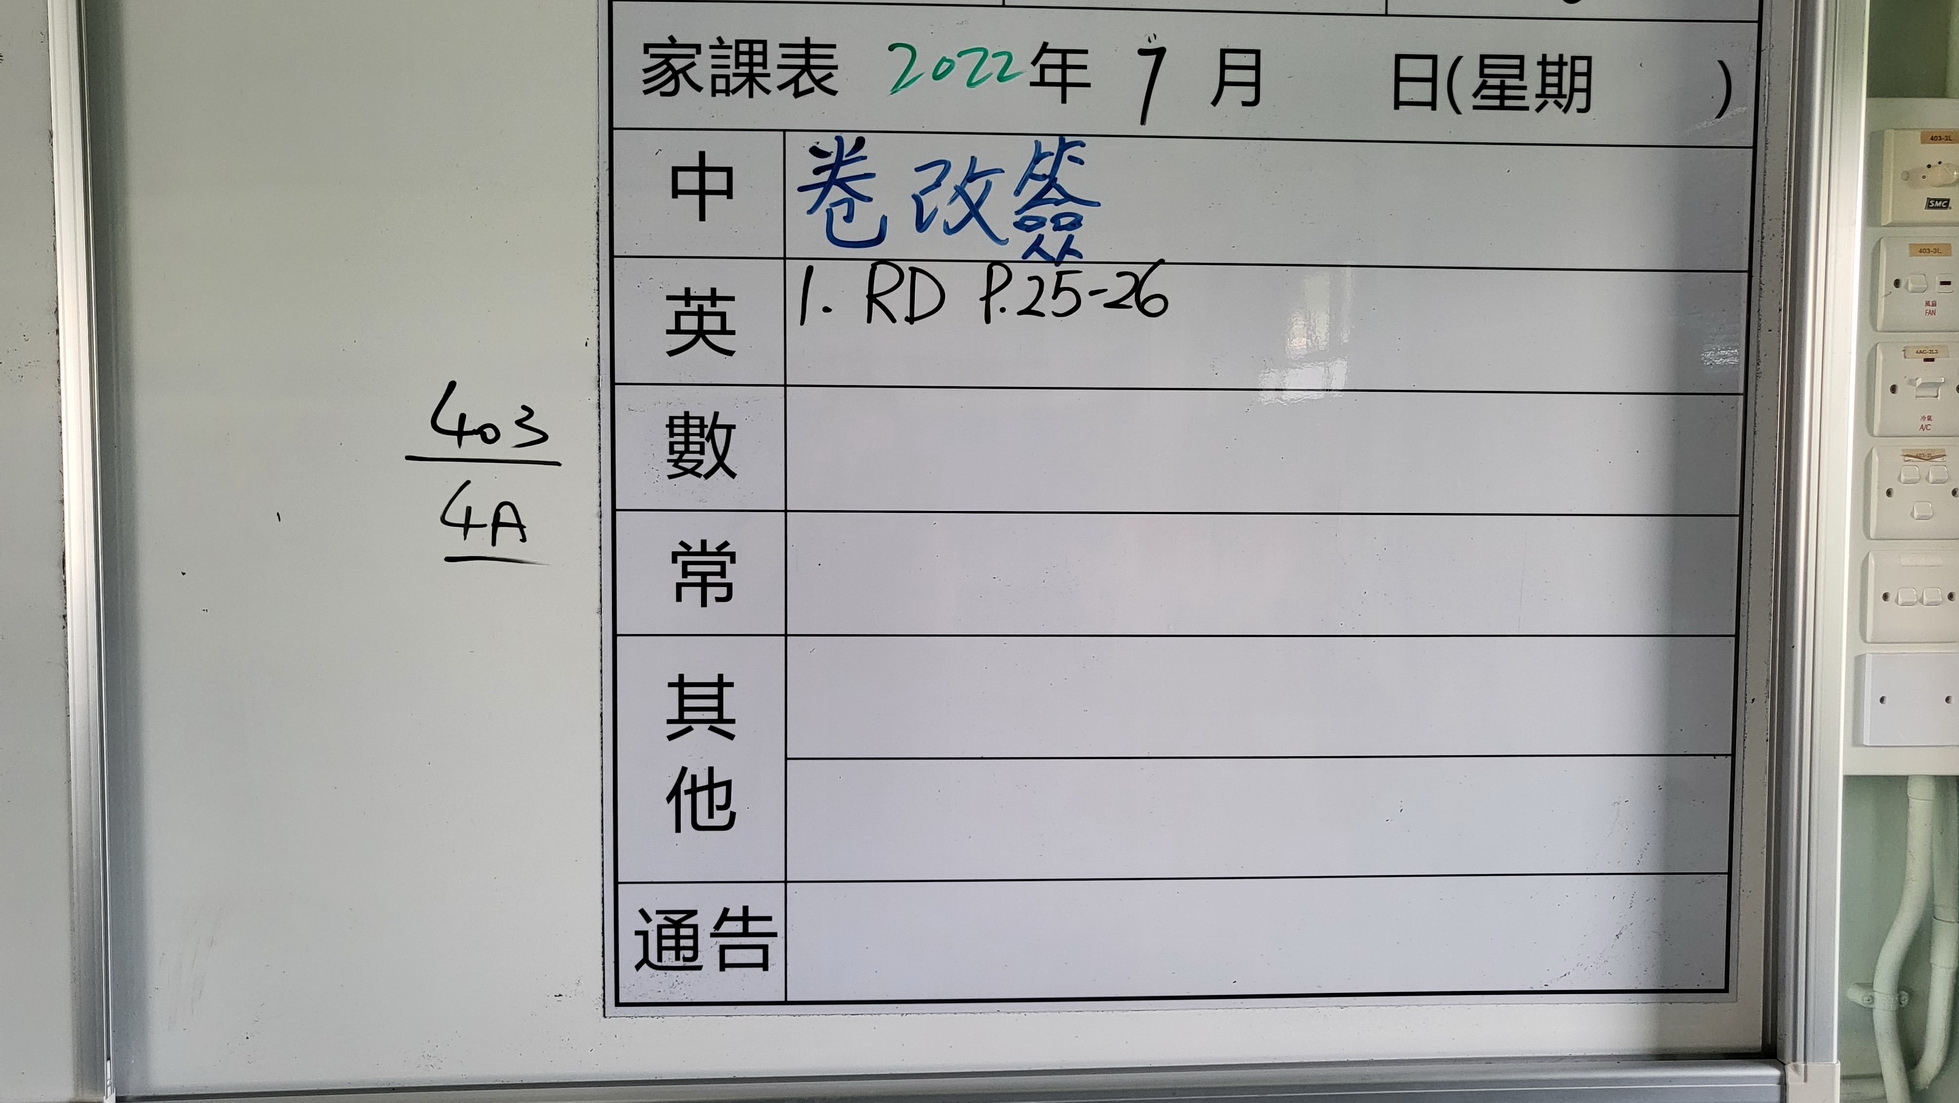 家課表 2022年 7月 日(星期 )
中 卷改簽
英 1. RD P.25-26
數
常
其他
通告
403
4A
403-2L
SMC
403-3L
風扇
FAN
4AC-2L2
冷氣
A/C